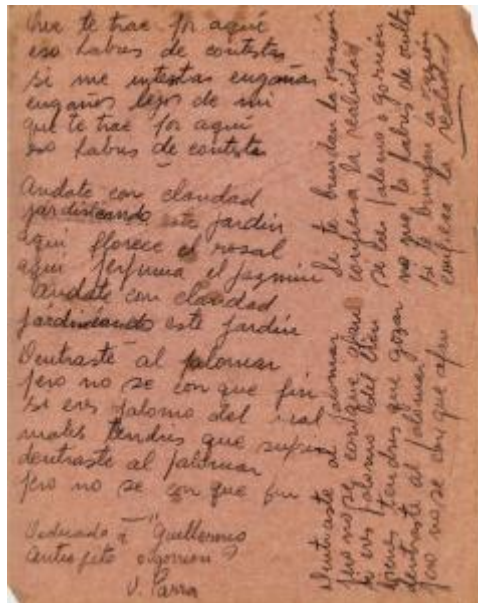 Que te trae por aquí
eso habrás de contestar
si me intentas engañar
engaños lejos de mí
que te trae por aquí
eso habrás de contestar
andate con claridad
jardineando este jardín
aquí florece el rosal
aquí perfuma el jazmín
andate con claridad
jardineando este jardín
Dentraste al palomar
pero no se con que fin
si eres palomo del mal
males tendrás que sufrir
dentraste al palomar
pero no se con que fin
Dedicado a "Guillermo
Antes pito o gorrion?
V. Parra
Dentraste al palomar
pero no se con que afan
si eres palomo del
tendrás que gozar
dentraste al palomar
pero no se con que afan
Si te brindan la razón
confiesa la realidad
si eres palomo o gorrión
no me lo habrás de ocultar
si te brindan la razón
confiesa la realidad